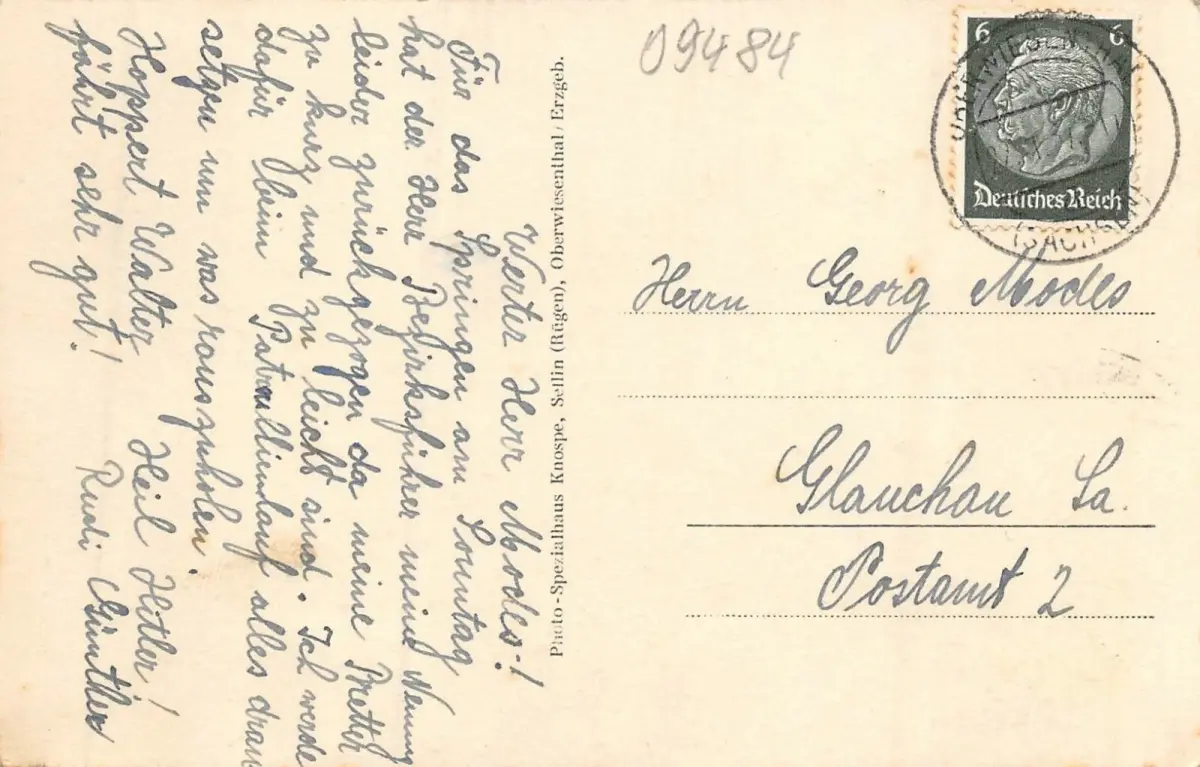 Werter Herr Modes-!
Für das Springen am Sonntag
hat der Herr Bezirksführer meine Nennung
leider zurückgezogen da meine Bretter
zu kurz und zu leicht sind. Ich werde
dafür beim Patrouillenlauf alles dran
setzen um was rauszuholen.
Hoppert Walter Heil Hitler!
fährt sehr gut! Rudi Günther
Photo-Spezialhaus Knospe, Sellin (Rügen), Oberwiesenthal/Erzgeb.
09484
6 6
Deutsches Reich
OBERWIESENTHAL
(SACHSEN)
Herrn Georg Modes
Glauchau Sa.
Postamt 2